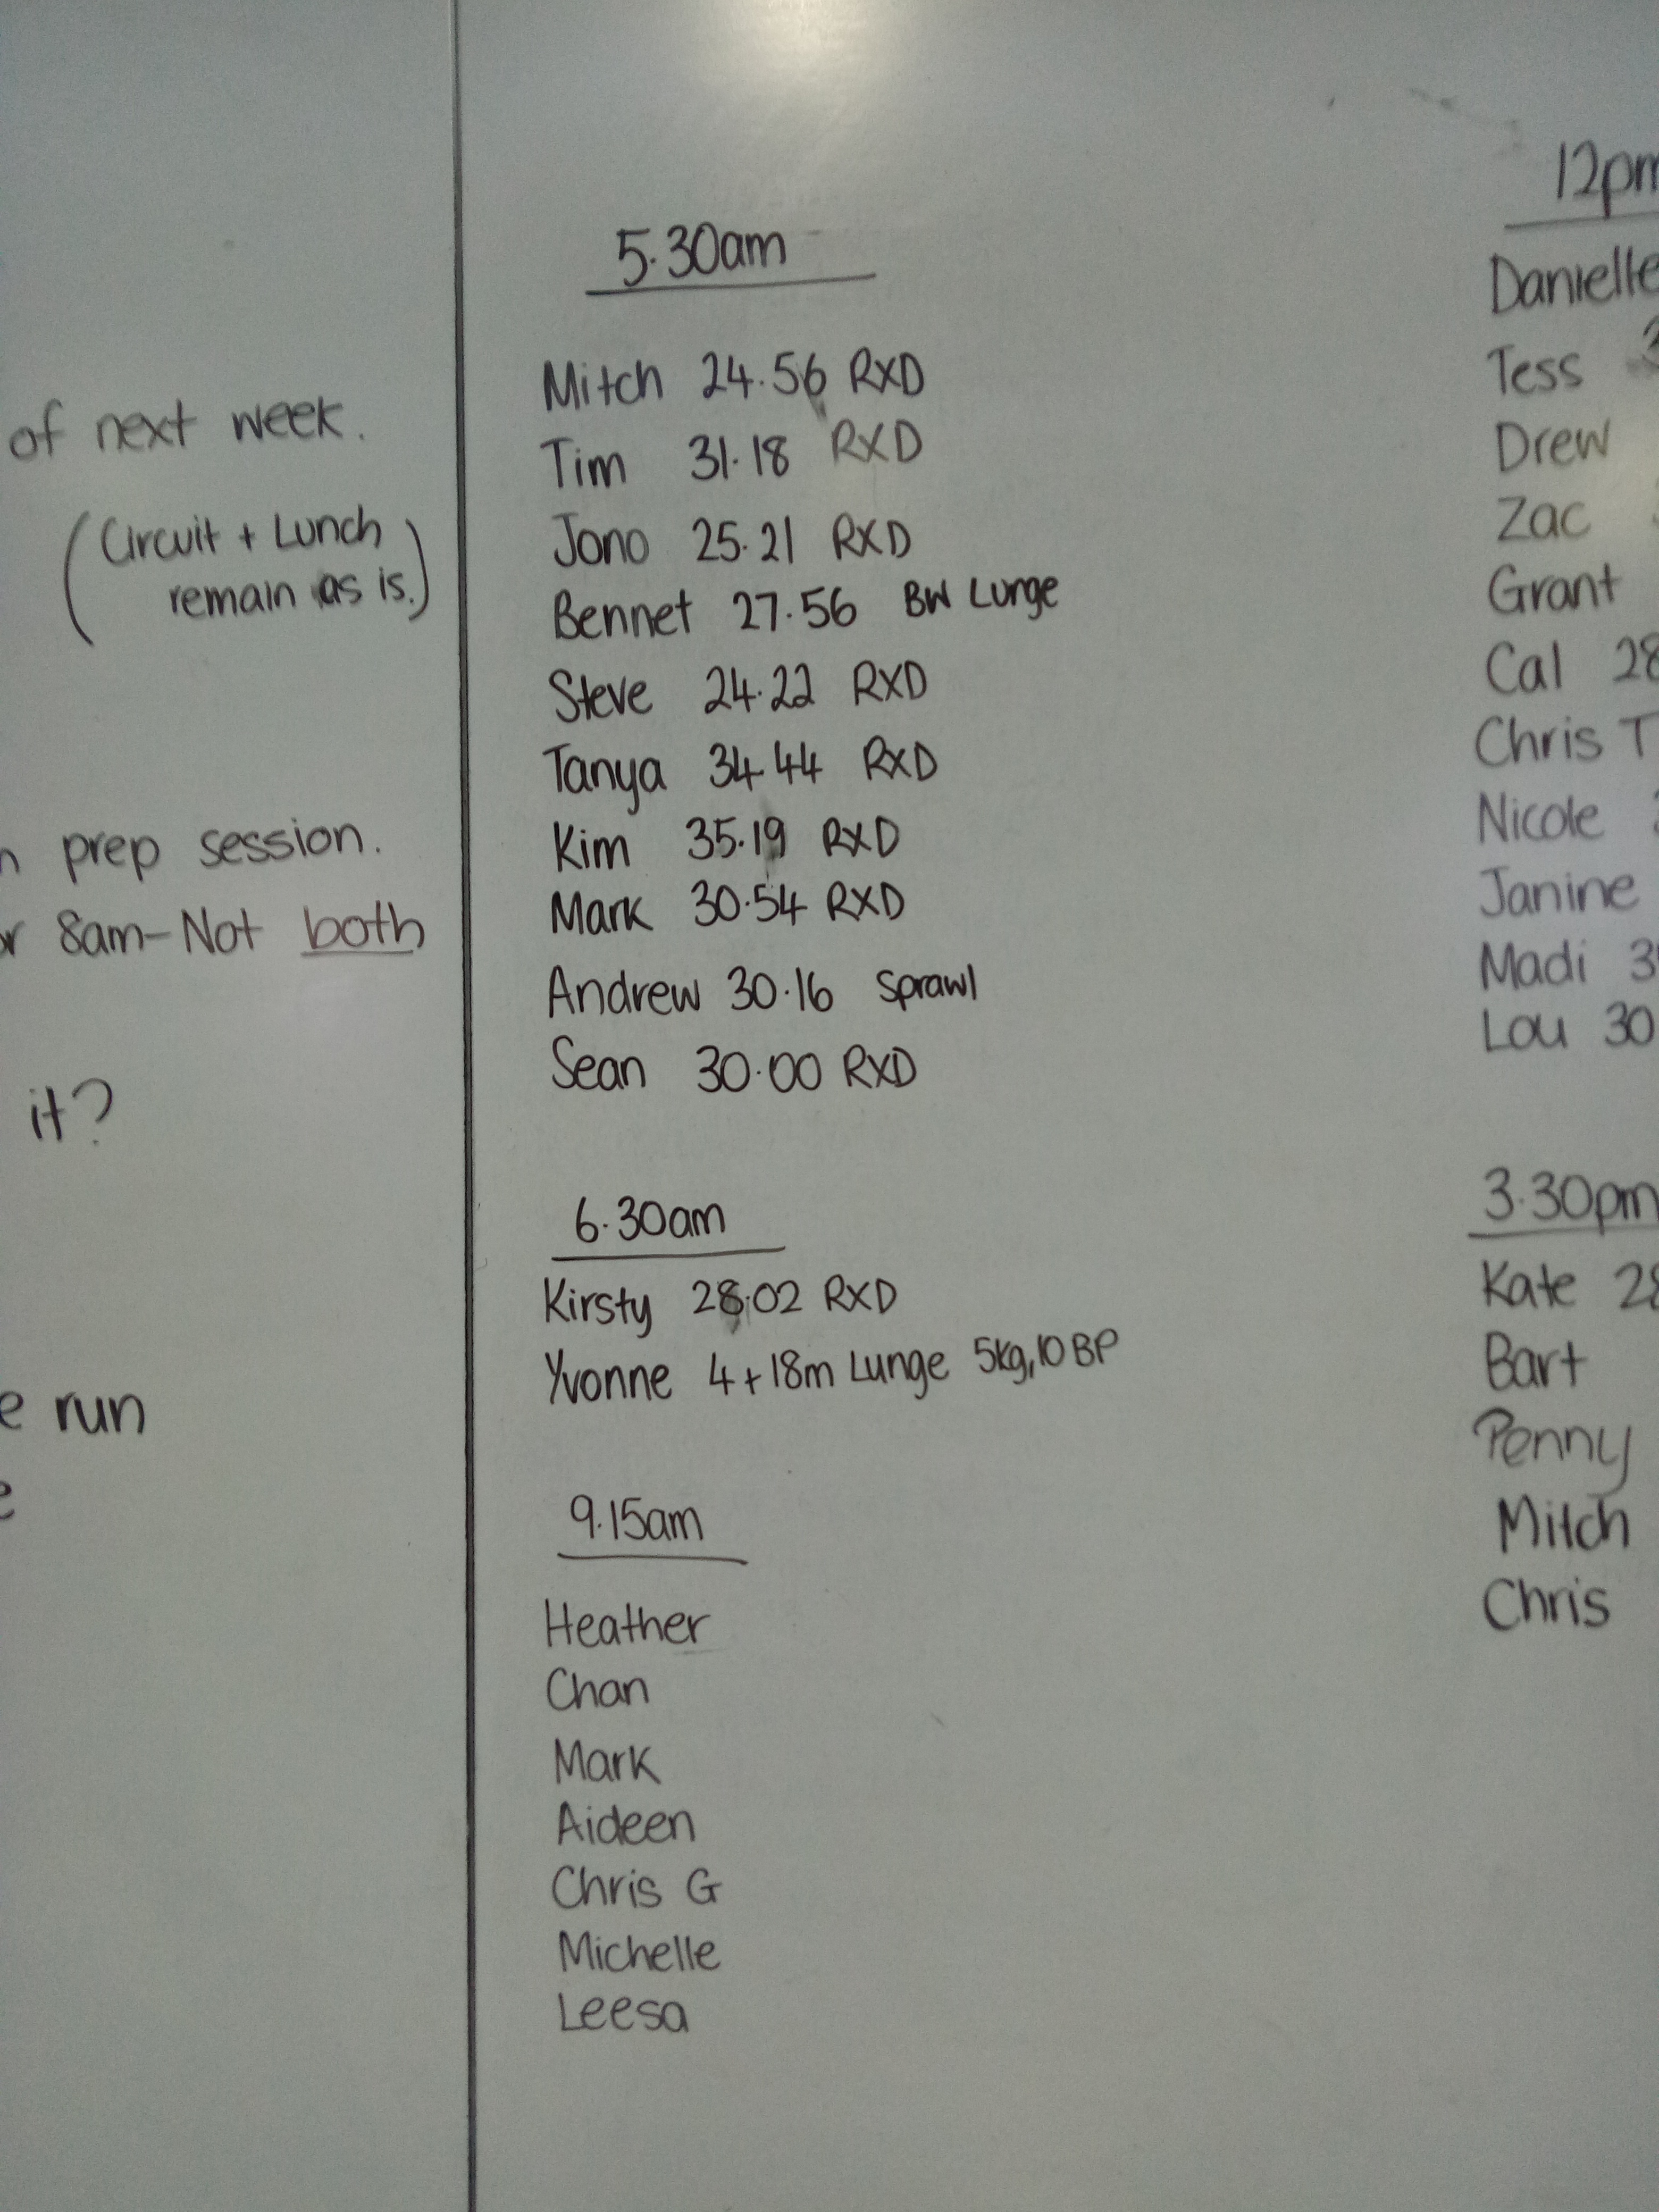 of next week.
(Circuit + Lunch
remain as is.)
prep session.
8am-Not both
it?
run
5.30am
Mitch 24.56 RXD
Tim 31.18 RXD
Jono 25.21 RXD
Bennet 27.56 BW Lunge
Steve 24.22 RXD
Tanya 34.44 RXD
Kim 35.19 RXD
Mark 30.54 RXD
Andrew 30.16 Sprawl
Sean 30.00 RXD
6.30am
Kirsty 28.02 RXD
Yvonne 4+18m Lunge 5kg,10 BP
9.15am
Heather
Chan
Mark
Aideen
Chris G
Michelle
Leesa
12pm
Danielle
Tess
Drew
Zac
Grant
Cal 28
Chris T
Nicole
Janine
Madi
Lou 30
3.30pm
Kate 28
Bart
Penny
Mitch
Chris